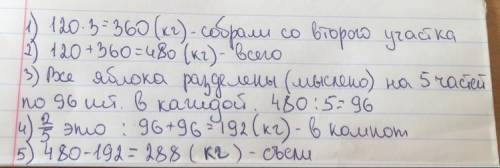 1) 120·3=360(кг)-собрали со второго участка
2) 120+360=480(кг)- всего
3) Все яблока разделены (мыслено) на 5 частей
по 96 шт. в каждой. 480:5=96
4) 2/5 это : 96+96=192(кг)- в компот
5) 480-192=288(кг)-съели